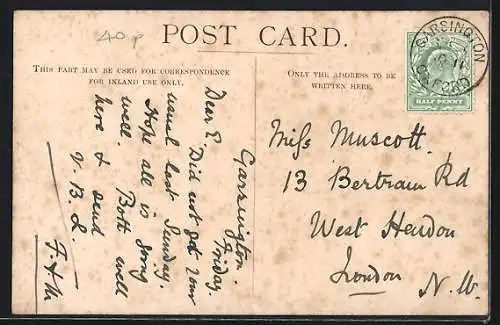 40p
POST CARD.
THIS PART MAY BE USED FOR CORRESPONDENCE
FOR INLAND USE ONLY.
ONLY THE ADDRESS TO BE
WRITTEN HERE.
GARSINGTON
OXFORD
HALF PENNY
Garsington.
Friday.
Dear E. Did not get your
usual last Sunday.
Hope all is going
well. Both well
here & send
V. B. L.
F & M
Miss Muscott.
13 Bertram Rd
West Hendon
London
N. W.